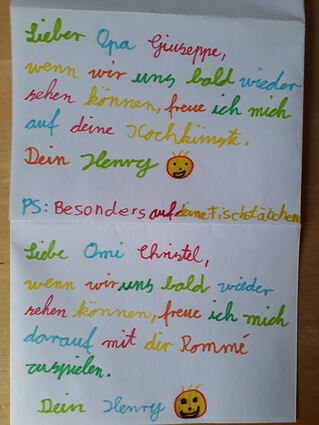 Lieber Opa Giuseppe,
wenn wir uns bald wieder
sehen können, freue ich mich
auf deine Kochkünste.
Dein Henry
PS: Besonders auf deine Fischstäbchen
Liebe Omi Christel,
wenn wir uns bald wieder
sehen können, freue ich mich
darauf mit dir Rommé
zuspielen.
Dein Henry